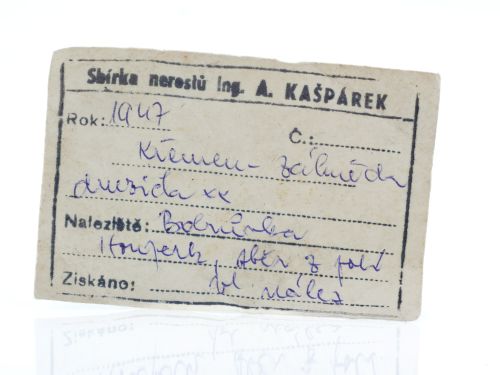 Sbírka nerostů Ing. A. KAŠPÁREK
Rok: 1947
Č.:
Křemen - záhněda
druzida xx
Naleziště: Bobrůvka
sběr z polí
Získáno: vl. nález